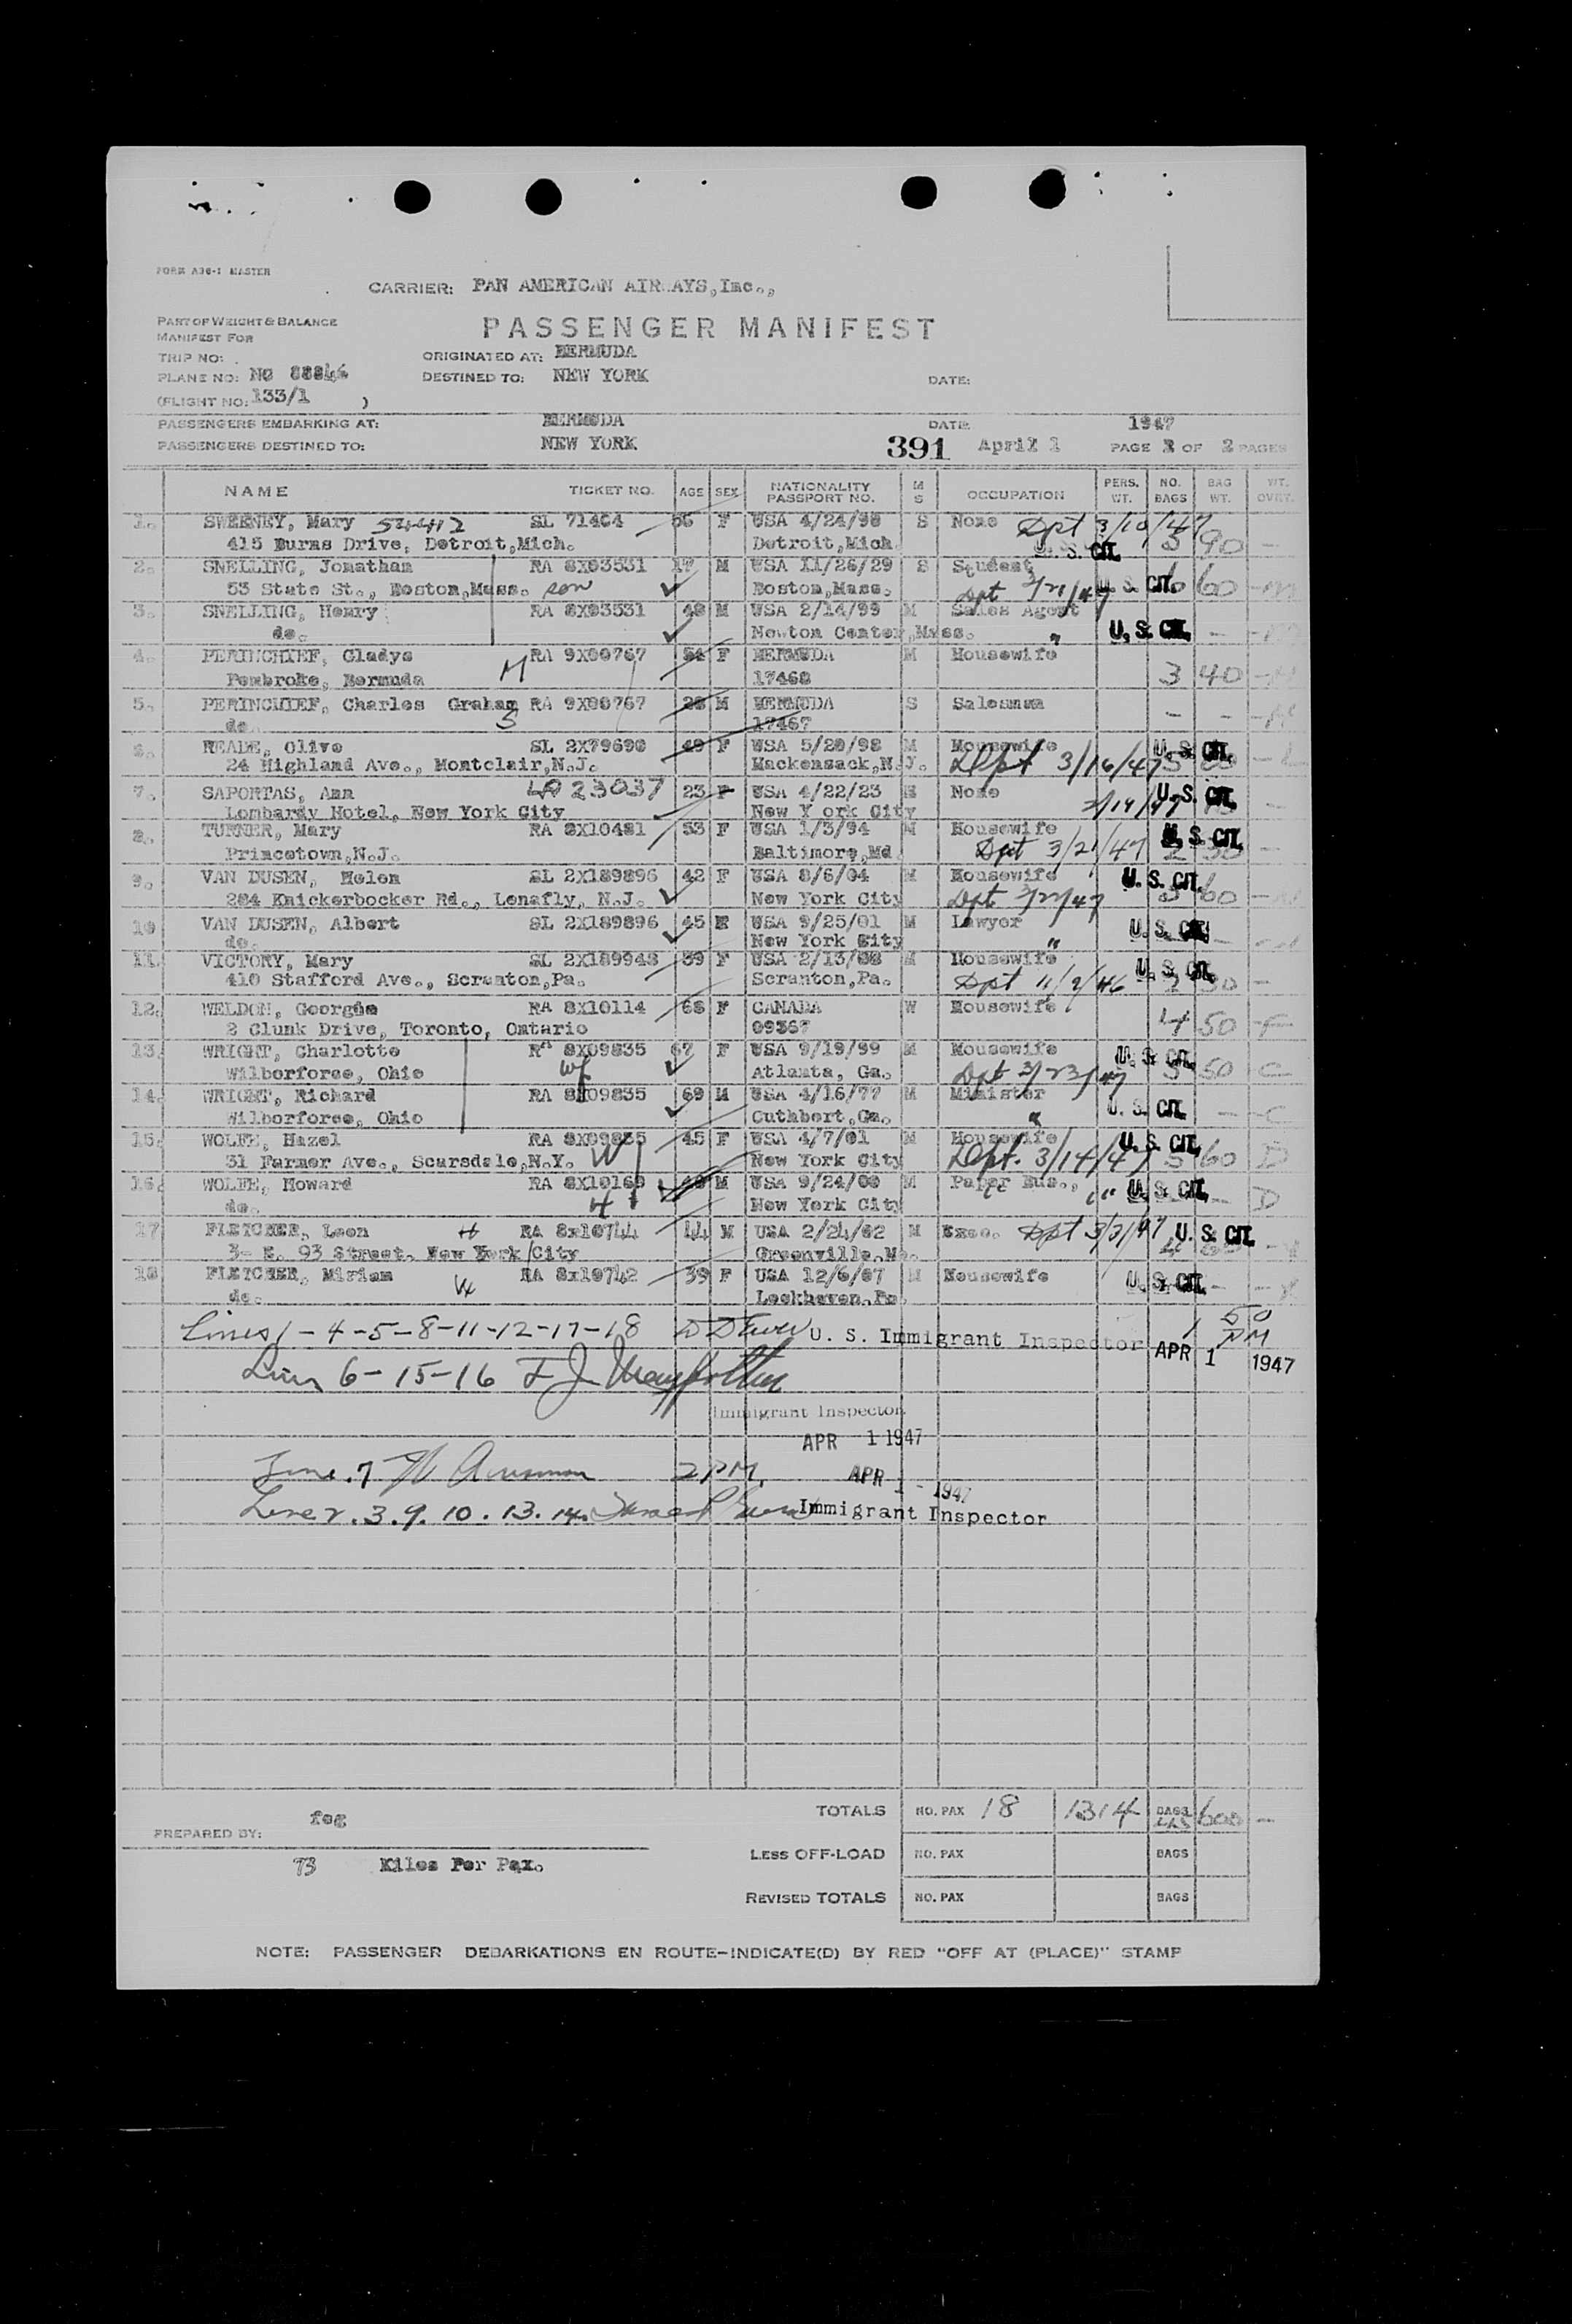 FORM A36-1 MASTER
CARRIER: PAN AMERICAN AIRWAYS, Inc.,
PART OF WEIGHT & BALANCE
MANIFEST FOR
PASSENGER MANIFEST
TRIP NO: ORIGINATED AT: BERMUDA
PLANE NO: NC DESTINED TO: NEW YORK DATE:
(FLIGHT NO: 133/1 )
PASSENGERS EMBARKING AT: BERMUDA DATE: 1947
PASSENGERS DESTINED TO: NEW YORK 391 April 1 PAGE 2 OF 2 PAGES
NAME TICKET NO. AGE SEX NATIONALITY PASSPORT NO. M S OCCUPATION PERS. WT. NO. BAGS BAG WT. WT. OVRT.
1. SWEENEY, Mary 54412 SL 71464 56 F USA 4/24/90 S None Dpt 3/10/47
415 Burns Drive, Detroit,Mich. Detroit,Mich. U. S. CIT. 3 90 -
2. SNELLING, Jonathan RA 8X03531 17 M USA 11/26/29 S Student
53 State St., Boston,Mass. son Boston,Mass. Dpt 3/21/47 U. S. CIT. 60
3. SNELLING, Henry RA 8X03531 48 M USA 2/14/99 M Sales Agent
do. Newton Center,Mass. " U. S. CIT. -
4. PERINCHIEF, Gladys M RA 9X00767 54 F BERMUDA M Housewife
Pembroke, Bermuda 17468 3 40
5. PERINCHIEF, Charles Graham RA 9X00767 28 M BERMUDA S Salesman
do. S 17467 - -
6. READE, Olive SL 2X79690 49 F USA 5/20/98 M Housewife U. S. CIT.
24 Highland Ave., Montclair,N.J. Hackensack,N.J. Dept 3/16/47
7. SAPORTAS, Ann LA 23037 23 F USA 4/22/23 None U. S. CIT.
Lombardy Hotel, New York City New Y ork City
8. TURNER, Mary RA 8X10481 53 F USA 1/3/94 M Housewife U. S. CIT.
Princetown,N.J. Baltimore,Md. Dpt 3/21/47
9. VAN DUSEN, Helen SL 2X189896 42 F USA 8/6/04 M Housewife U. S. CIT.
284 Knickerbocker Rd., Lenafly, N.J. New York City Dpt 3/22/47 60
10 VAN DUSEN, Albert SL 2X189896 45 M USA 9/25/01 M Lawyer U. S. CIT.
do. New York City "
11. VICTORY, Mary SL 2X189948 39 F USA 2/13/08 M Housewife U. S. CIT.
410 Stafford Ave., Scranton,Pa. Scranton,Pa. Dpt 11/2/46
12. WELDON, Georgina RA 8X10114 68 F CANADA W Housewife
2 Clunk Drive, Toronto, Ontario 09367 4 50 F
13. WRIGHT, Charlotte RA 8X09835 67 F USA 9/19/99 M Housewife U. S. CIT.
Wilberforce, Ohio wf Atlanta, Ga. Dpt 3/23/47 50 C
14. WRIGHT, Richard RA 8X09835 69 M USA 4/16/77 M Minister U. S. CIT.
Wilberforce, Ohio Cuthbert,Ga. " - C
15. WOLFE, Hazel RA 8X09835 45 F USA 4/7/01 M Housewife U. S. CIT.
31 Farmer Ave., Scarsdale,N.Y. W New York City Dept. 3/14/47 60 D
16. WOLFE, Howard RA 8X10169 M USA 9/24/00 M Paper Bus., " U. S. CIT. - D
do. H New York City
17 FLETCHER, Leon H RA 8x10744 44 M USA 2/24/02 M Exec. Dpt 3/31/47 U. S. CIT.
3- E. 93 Street, New York City Greenville,
18 FLETCHER, Miriam W RA 8x10742 39 F USA 12/6/07 M Housewife U. S. CIT.
do. Lockhaven,Pa.
Lines 1-4-5-8-11-12-17-18 U. S. Immigrant Inspector APR 1 1947 1 50 PM
Lines 6-15-16
Immigrant Inspector
APR 1 1947
Line .7 2 PM. APR 1 - 1947
Line 2.3.9.10.13.14. Immigrant Inspector
TOTALS NO. PAX 18 1314 BAGS 600 -
feg
PREPARED BY:
LESS OFF-LOAD NO. PAX BAGS
73 Kilos Per Pax.
REVISED TOTALS NO. PAX BAGS
NOTE: PASSENGER DEBARKATIONS EN ROUTE-INDICATE(D) BY RED "OFF AT (PLACE)" STAMP